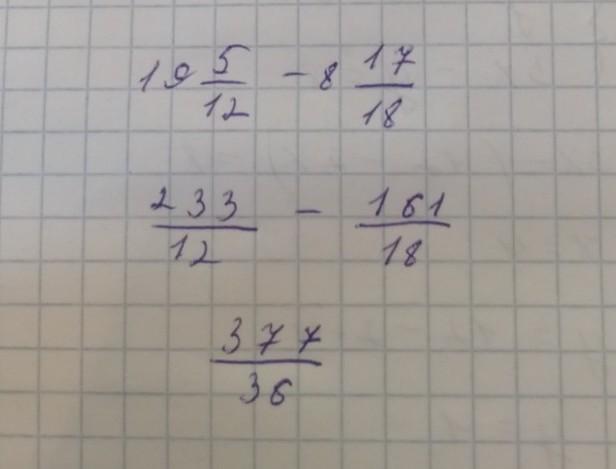 19 5/12 - 8 17/18
233/12 - 161/18
377/36